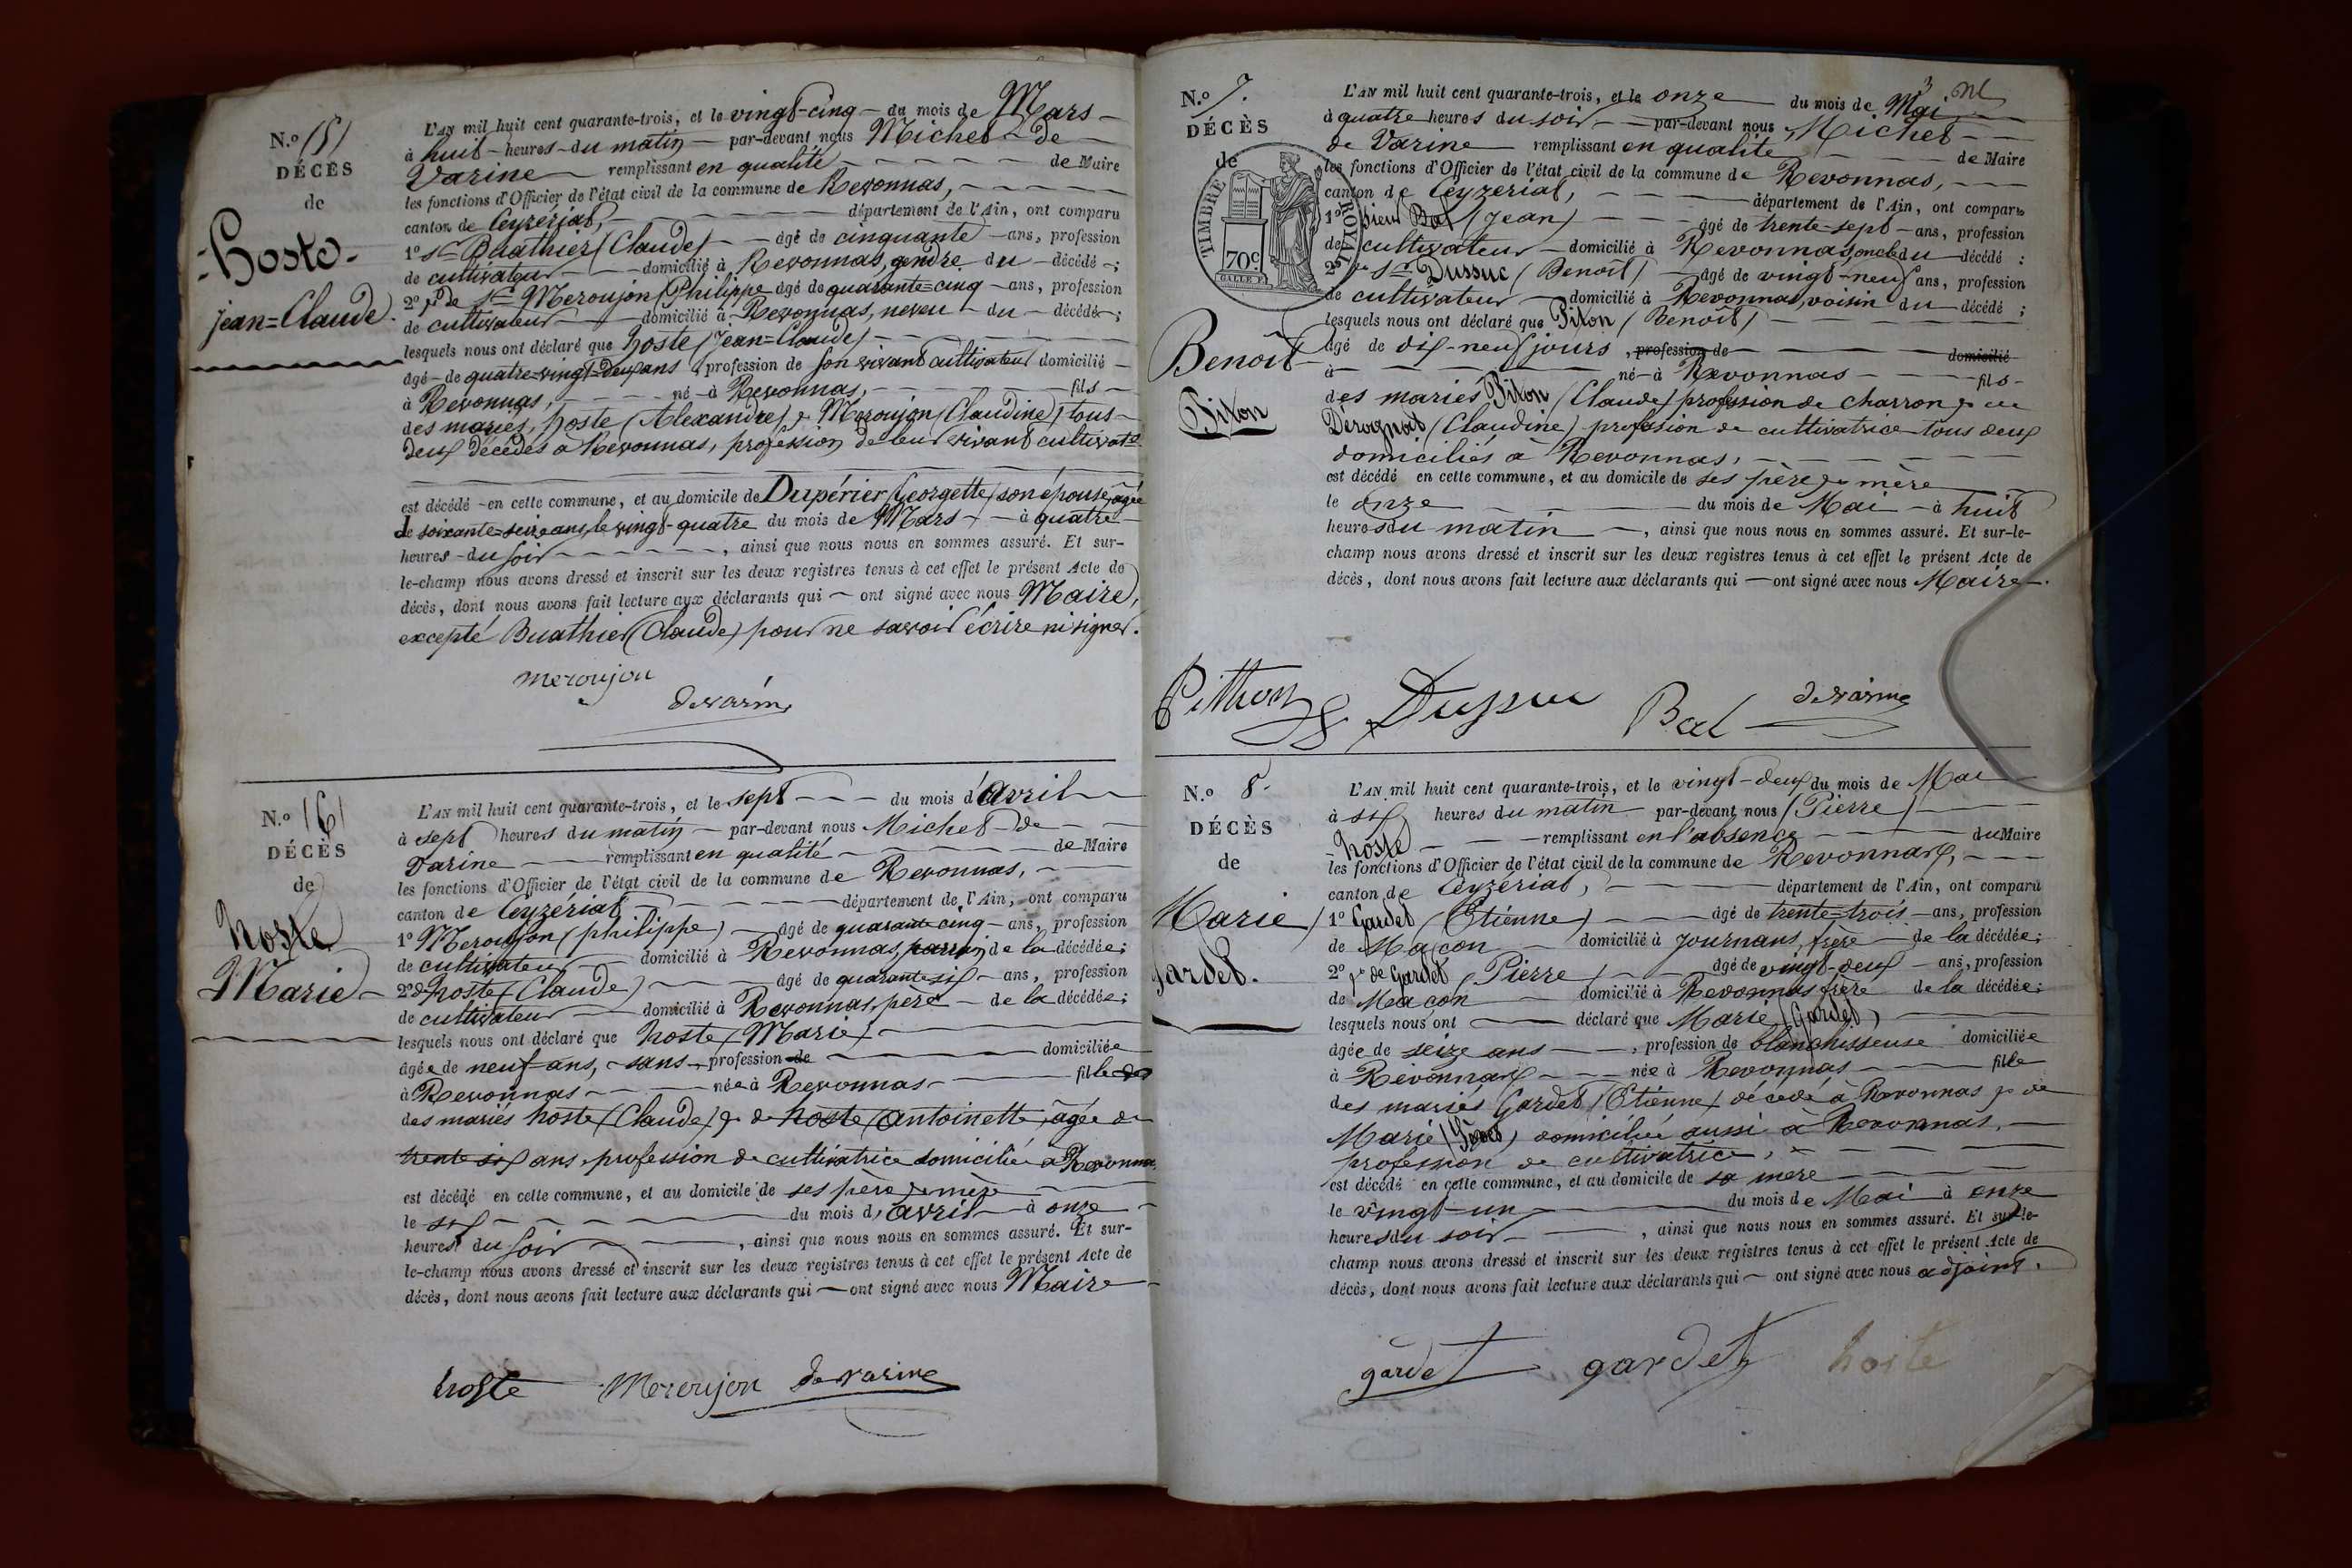 N.º (5)
DÉCÈS
de
Hoste
jean=Claude.
L'AN mil huit cent quarante-trois, et le vingt-cinq du mois de Mars
à huit heures du matin par-devant nous Michel de
Varine remplissant en qualité de Maire
les fonctions d'Officier de l'état civil de la commune de Revonnas,
canton de Ceyzériat, département de l'Ain, ont comparu
1º Sr Buathier (Claude) âgé de cinquante ans, profession
de cultivateur domicilié à Revonnas, gendre du décédé ;
2º & de Sr Meroujon (Philippe âgé de quarante=cinq ans, profession
de cultivateur domicilié à Revonnas, neveu du décédé ;
lesquels nous ont déclaré que hoste (Jean=Claude)
âgé de quatre=vingt=deux ans profession de son vivant cultivateur domicilié
à Revonnas, né à Revonnas, fils
des mariés, hoste (Alexandre) & Meroujon (Claudine) tous
deux décédés à Revonnas, profession de leur vivant cultivatrs
est décédé en cette commune, et au domicile de Dupérier (Georgette) son épouse, âgée
de soixante=seize ans, le vingt-quatre du mois de Mars à quatre
heures du soir , ainsi que nous nous en sommes assuré. Et sur-
le-champ nous avons dressé et inscrit sur les deux registres tenus à cet effet le présent Acte de
décès, dont nous avons fait lecture aux déclarants qui ont signé avec nous Maire,
excepté Buathier (Claude) pour ne savoir écrire ni signer.
meroujon
devarine
N.º (6)
DÉCÈS
de
hoste
Marie
L'AN mil huit cent quarante-trois, et le sept du mois d'avril
à sept heures du matin par-devant nous Michel de
Varine remplissant en qualité de Maire
les fonctions d'Officier de l'état civil de la commune de Revonnas,
canton de Ceyzériat département de l'Ain, ont comparu
1º Meroujon (philippe) âgé de quarante cinq ans, profession
de cultivateur domicilié à Revonnas, parrin de la décédée;
2º & hoste (Claude) âgé de quarante six ans, profession
de cultivateur domicilié à Revonnas, père de la décédée;
lesquels nous ont déclaré que hoste (Marie)
âgée de neuf ans, sans profession de domiciliée
à Revonnas née à Revonnas fille
des mariés hoste (Claude) & de hoste (antoinette) âgée de
trente six ans profession de cultivatrice domiciliée à Revonnas
est décédé en cette commune, et au domicile de ses père & mère
le six du mois d'avril à onze
heures du soir , ainsi que nous nous en sommes assuré. Et sur-
le-champ nous avons dressé et inscrit sur les deux registres tenus à cet effet le présent Acte de
décès, dont nous avons fait lecture aux déclarants qui ont signé avec nous Maire
hoste Meroujon de varine
N.º 7.
DÉCÈS
de
TIMBRE ROYAL
70c
Benoît
Piton
L'AN mil huit cent quarante-trois, et le onze du mois de Mai
à quatre heures du soir par-devant nous Michel
de Varine remplissant en qualité de Maire
les fonctions d'Officier de l'état civil de la commune de Revonnas,
canton de Ceyzériat, département de l'Ain, ont comparu
1º sieur Bal (Jean) âgé de trente=sept ans, profession
de cultivateur domicilié à Revonnas, oncle du décédé ;
2º & Sr Dussuc (Benoît) âgé de vingt-neuf ans, profession
de cultivateur domicilié à Revonnas, voisin du décédé ;
lesquels nous ont déclaré que Piton (Benoît)
âgé de dix-neuf jours , profession de domicilié
à né à Revonnas fils
des mariés Piton (Claude) profession de charron & de
Dérognat (Claudine) profession de cultivatrice tous deux
domiciliés à Revonnas,
est décédé en cette commune, et au domicile de ses père & mère
le onze du mois de Mai à huit
heures du matin , ainsi que nous nous en sommes assuré. Et sur-le-
champ nous avons dressé et inscrit sur les deux registres tenus à cet effet le présent Acte de
décès, dont nous avons fait lecture aux déclarants qui ont signé avec nous Maire.
Pithon Dussuc Bal devarine
N.º 8.
DÉCÈS
de
Marie
gardet.
L'AN mil huit cent quarante-trois, et le vingt-deux du mois de Mai
à six heures du matin par-devant nous (Pierre)
hoste remplissant en l'absence du Maire
les fonctions d'Officier de l'état civil de la commune de Revonnas,
canton de Ceyzériat, département de l'Ain, ont comparu
1º Gardet (Etienne) âgé de trente=trois ans, profession
de Maçon domicilié à Journans, frère de la décédée;
2º & de Gardet (Pierre) âgé de vingt-deux ans, profession
de Maçon domicilié à Revonnas frère de la décédée;
lesquels nous ont déclaré que Marie (Gardet)
âgée de seize ans , profession de blanchisseuse domiciliée
à Revonnas née à Revonnas fille
des mariés Gardet (Etienne) décédé à Revonnas & de
Marie domiciliée aussi à Revonnas,
profession de cultivatrice,
est décédé en cette commune, et au domicile de sa mère
le vingt-un du mois de Mai à onze
heures du soir , ainsi que nous nous en sommes assuré. Et sur-le-
champ nous avons dressé et inscrit sur les deux registres tenus à cet effet le présent Acte de
décès, dont nous avons fait lecture aux déclarants qui ont signé avec nous adjoint.
gardet gardet hoste